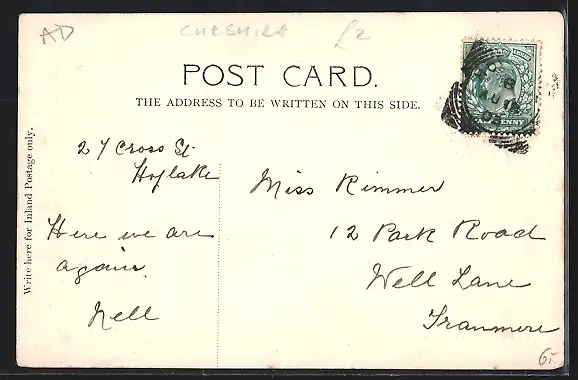 AD
CHESHIRE £2
POST CARD.
THE ADDRESS TO BE WRITTEN ON THIS SIDE.
Write here for Inland Postage only.
27 Cross St.
Hoylake
Here we are
again.
Nell
Miss Rimmer
12 Park Road
Well Lane
Tranmere
6/-